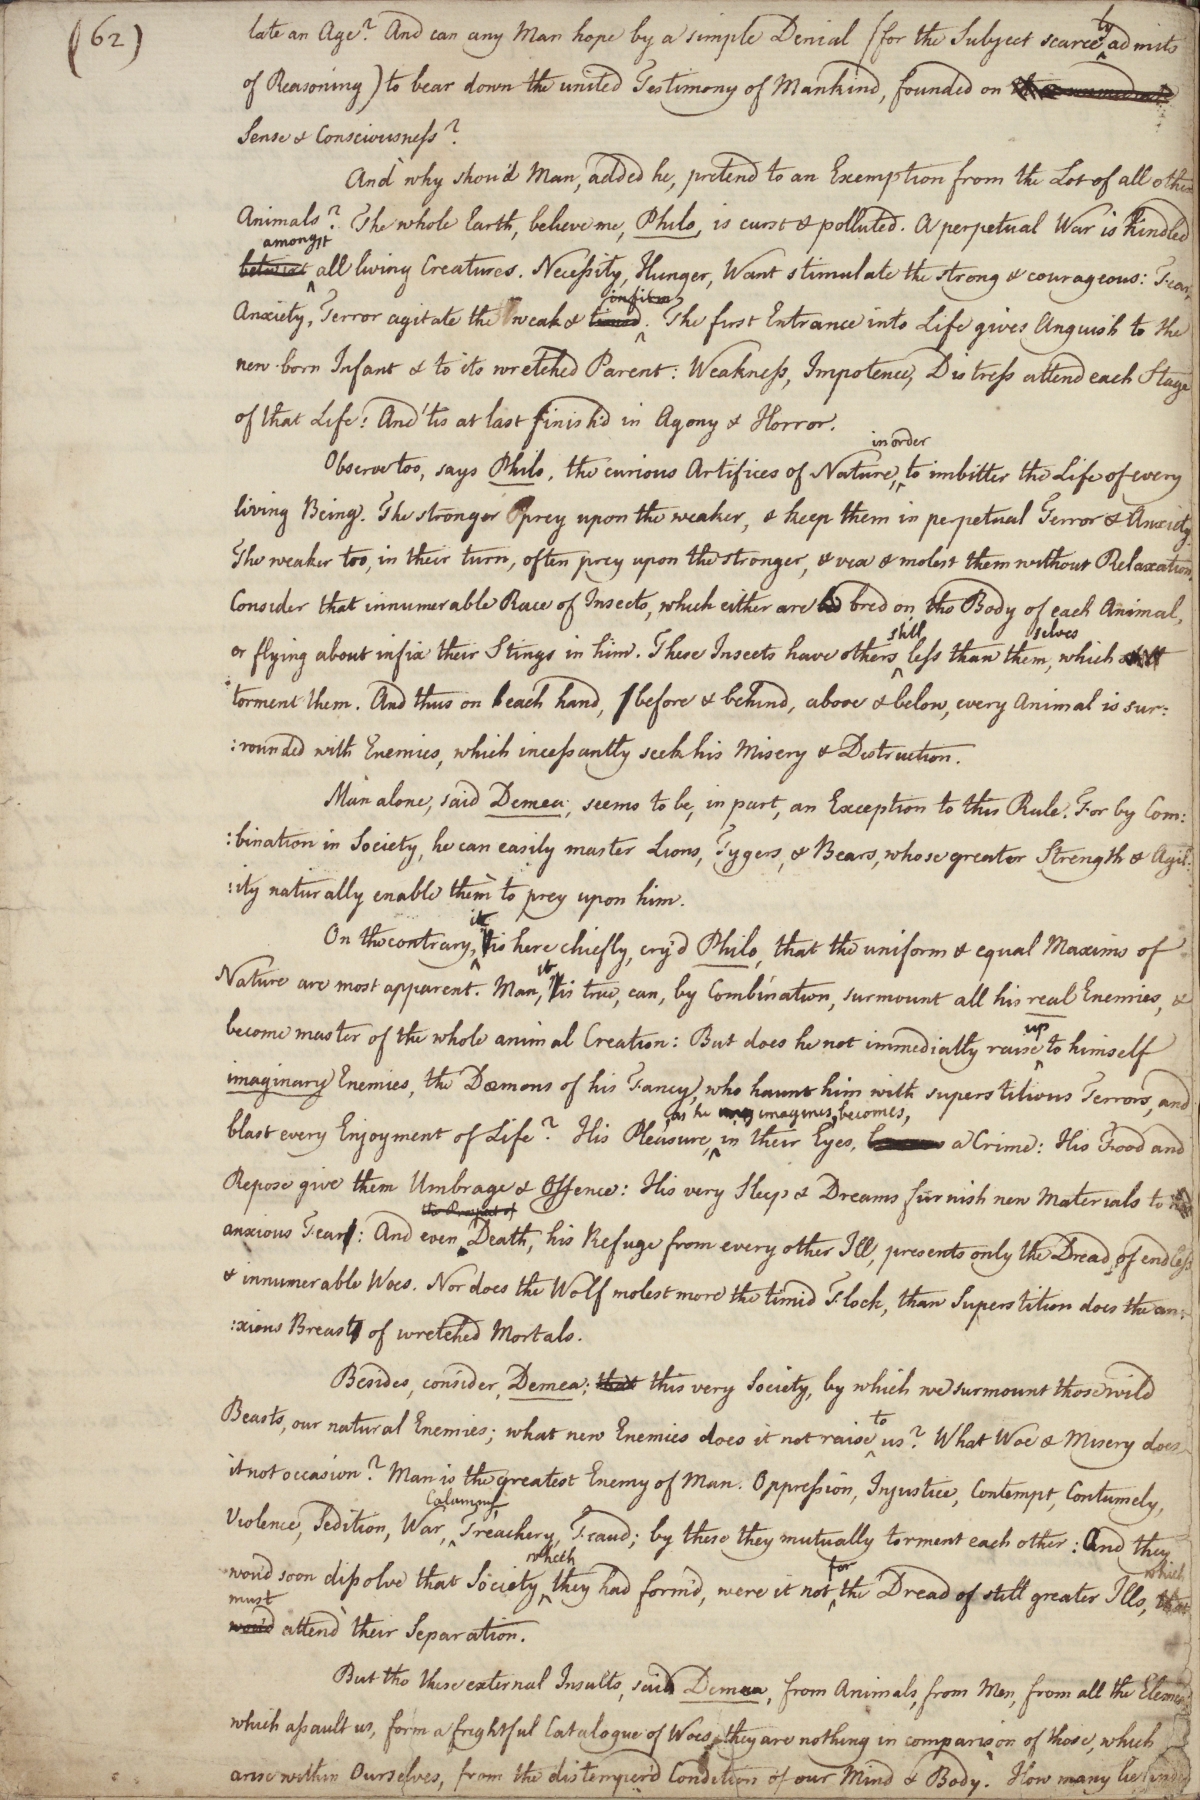 (62)
late an Age? And can any Man hope by a simple Denial (for the Subject scarcely admits
of Reasoning) to bear down the united Testimony of Mankind, founded on
Sense & Consciousness?
And why shou'd Man, added he, pretend to an Exemption from the Lot of all other
Animals? The whole Earth, believe me, Philo, is curst & polluted. A perpetual War is kindled
amongst
betwixt all living Creatures. Necessity, Hunger, Want stimulate the strong & courageous: Fear,
Anxiety, Terror agitate the weak & timid infirm. The first Entrance into Life gives Anguish to the
new-born Infant & to its wretched Parent: Weakness, Impotence, Distress attend each Stage
of that Life: And 'tis at last finish'd in Agony & Horror.
in order
Observe too, says Philo, the curious Artifices of Nature, to imbitter the Life of every
living Being. The stronger prey upon the weaker, & keep them in perpetual Terror & Anxiety.
The weaker too, in their turn, often prey upon the stronger, & vex & molest them without Relaxation.
Consider that innumerable Race of Insects, which either are bred on the Body of each Animal,
still selves
or flying about infix their Stings in him. These Insects have others less than them, which still
torment them. And thus on each hand, before & behind, above & below, every Animal is sur:
:rounded with Enemies, which incessantly seek his Misery & Destruction.
Man alone, said Demea, seems to be, in part, an Exception to this Rule. For by Com:
:bination in Society, he can easily master Lions, Tygers, & Bears, whose greater Strength & Agil:
:ity naturally enable them to prey upon him.
it
On the contrary, 'tis here chiefly, cry'd Philo, that the uniform & equal Maxims of
it
Nature are most apparent. Man, 'tis true, can, by Combination, surmount all his real Enemies, &
up
become master of the whole animal Creation: But does he not immediatly raise to himself
imaginary Enemies, the Dæmons of his Fancy, who haunt him with superstitious Terrors, and
as he imagines, becomes,
blast every Enjoyment of Life? His Pleasure, in their Eyes, a Crime: His Food and
Repose give them Umbrage & Offence: His very Sleep & Dreams furnish new Materials to
the Prospect of
anxious Fear: And even Death, his Refuge from every other Ill, presents only the Dread of endless
& innumerable Woes. Nor does the Wolf molest more the timid Flock, than Superstition does the an:
:xious Breast of wretched Mortals.
Besides, consider, Demea; that this very Society, by which we surmount those wild
to
Beasts, our natural Enemies; what new Enemies does it not raise us? What Woe & Misery does
it not occasion? Man is the greatest Enemy of Man. Oppression, Injustice, Contempt, Contumely,
Calumny,
Violence, Sedition, War, Treachery, Fraud; by these they mutually torment each other: And they
which for which
wou'd soon dissolve that Society they had form'd, were it not the Dread of still greater Ills, that
must
wou'd attend their Separation.
But tho these external Insults, said Demea, from Animals, from Men, from all the Elements
which assault us, form a frightful Catalogue of Woes, they are nothing in comparison of those, which
arise within Ourselves, from the distemper'd Condition of our Mind & Body. How many lie under